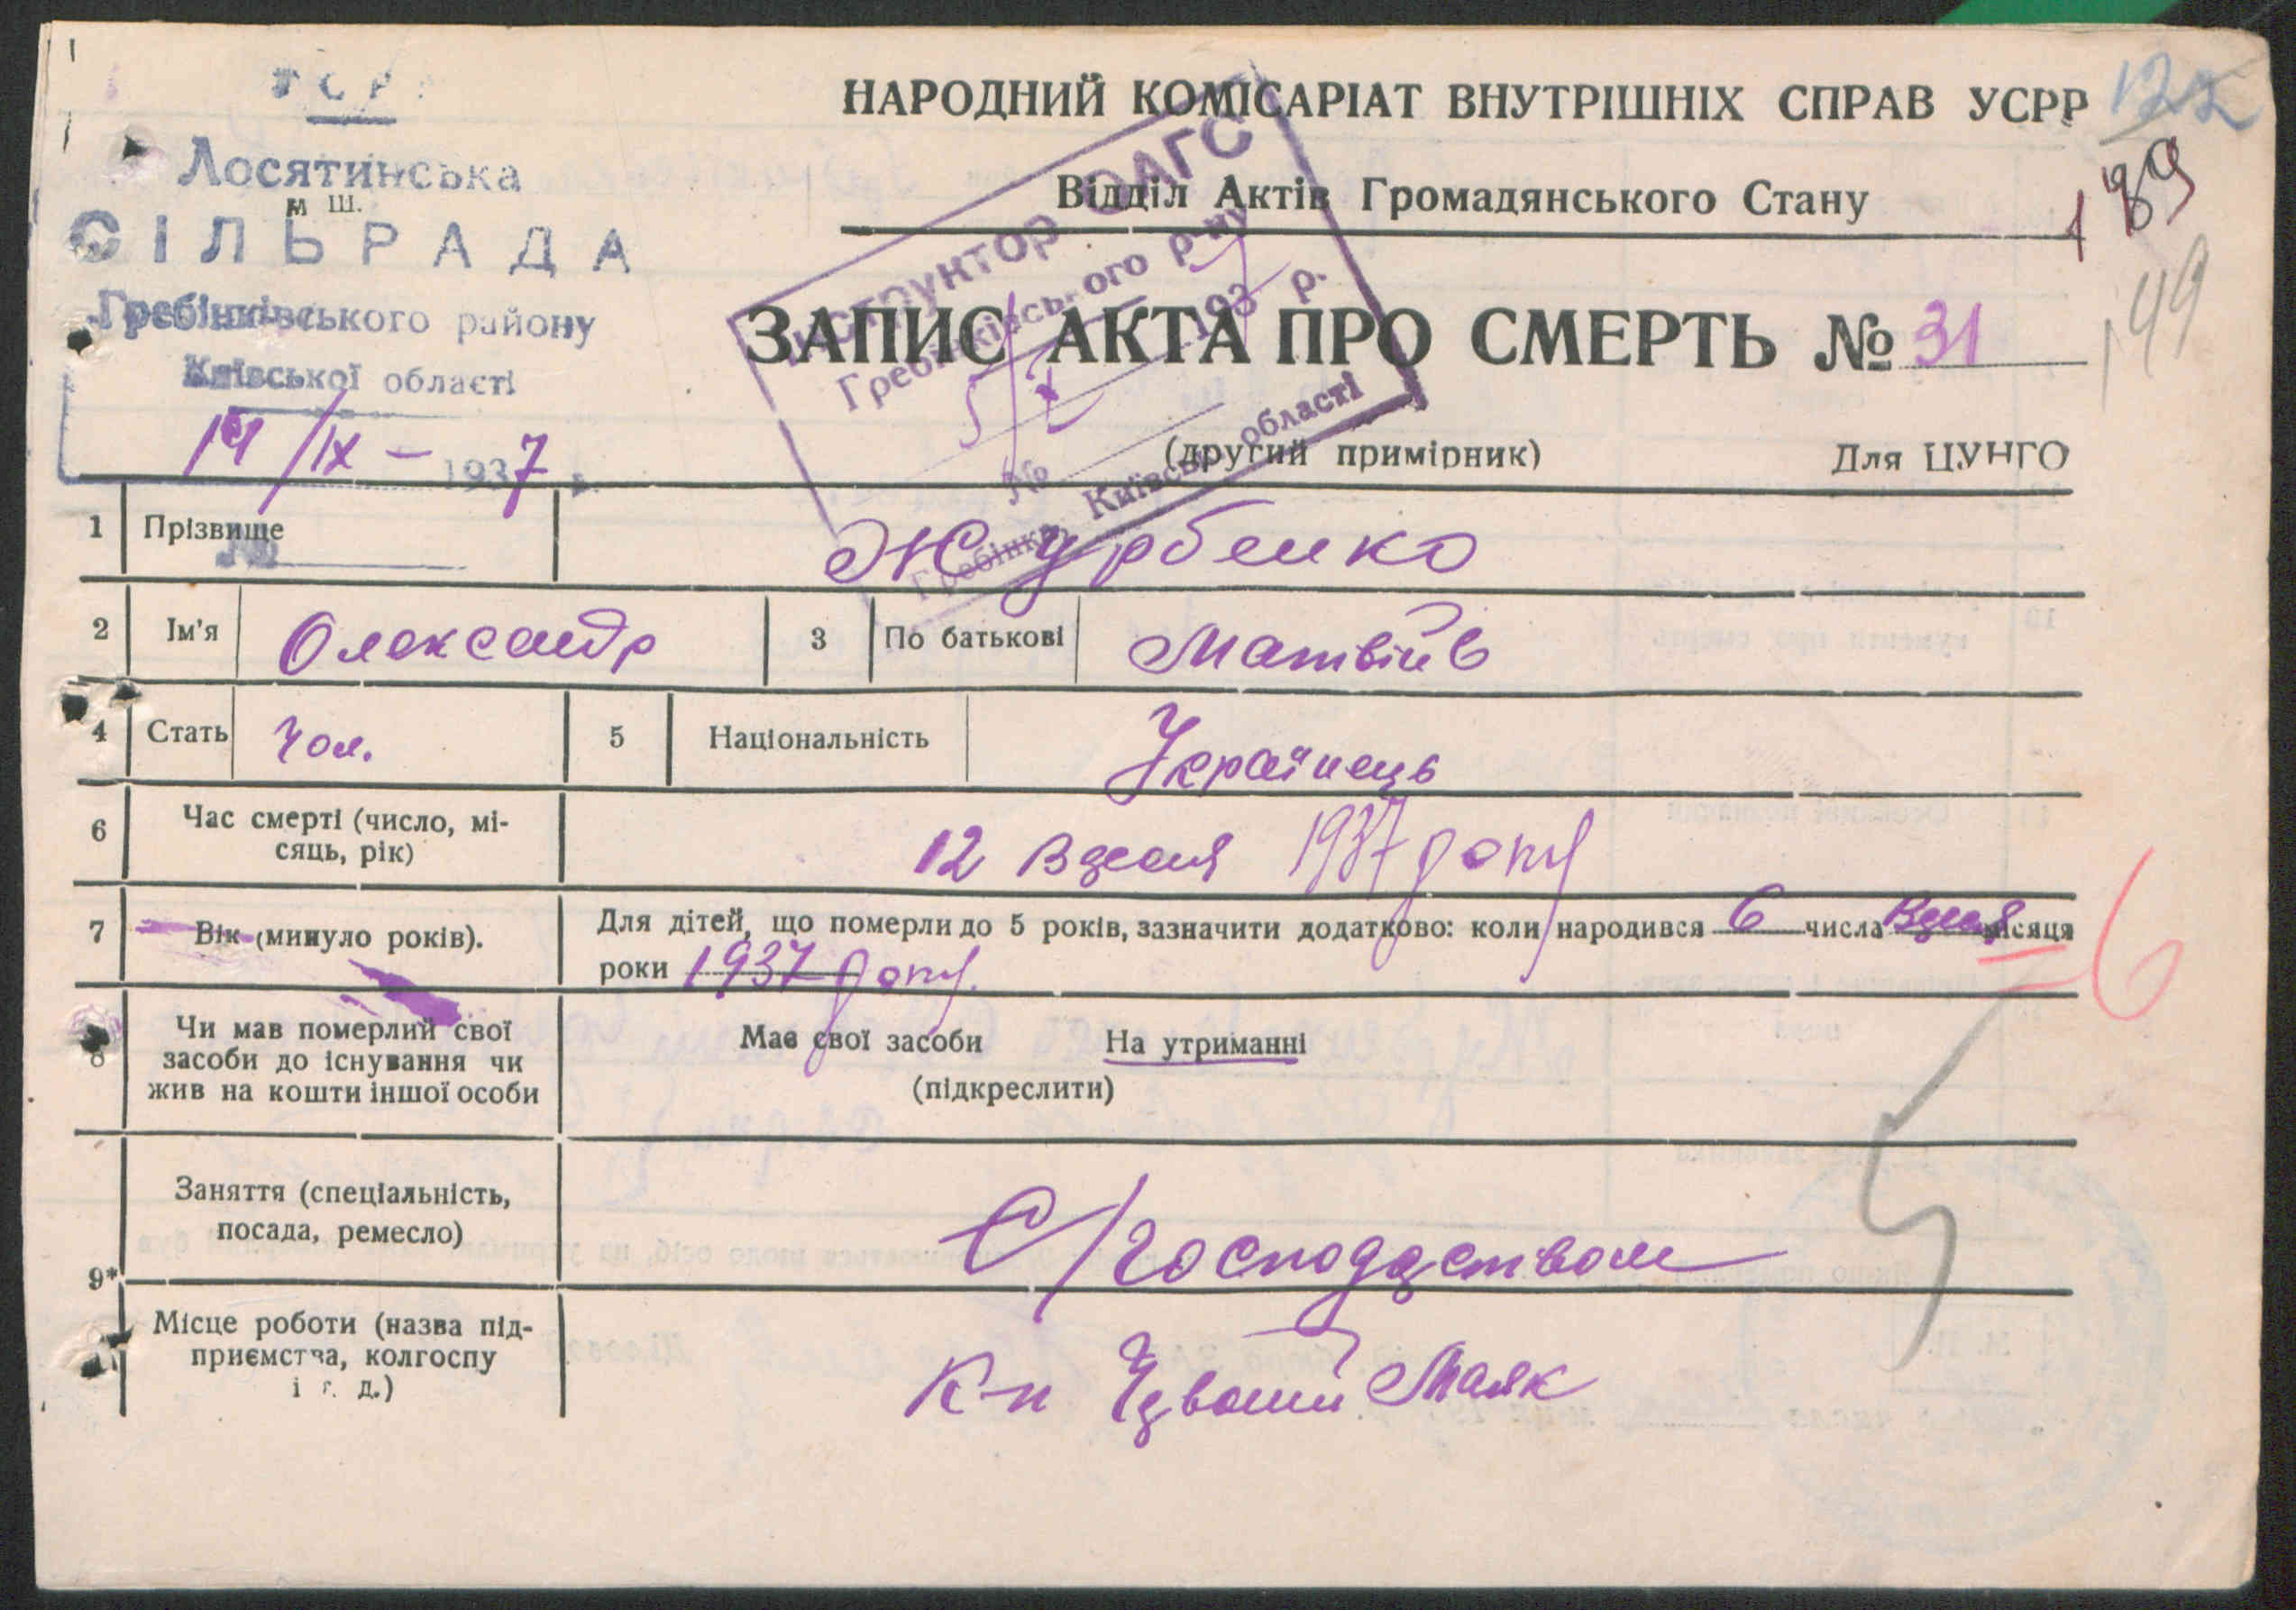 УСРР
Лосятинська
м Ш.
СІЛЬРАДА
Гребінківського району
Київської області
14/IX – 1937 р.
№
НАРОДНИЙ КОМІСАРІАТ ВНУТРІШНІХ СПРАВ УСРР
122
Відділ Актів Громадянського Стану
189
149
Інструктор ОАГС
Гребінківського р-ну
5/X 1937 р.
№
Гребінки, Київської області
ЗАПИС АКТА ПРО СМЕРТЬ № 31
(другий примірник) Для ЦУНГО
1 Прізвище Журбенко
2 Ім'я Олександр 3 По батькові Матвійв
4 Стать Чол. 5 Національність Українець
6 Час смерті (число, мі-
сяць, рік)
12 Вдесня 1937 року
7 Вік (минуло років).
Для дітей, що померли до 5 років, зазначити додатково: коли народився 6 числа місяця
роки 1937 року.
6
8 Чи мав померлий свої
засоби до існування чи
жив на кошти іншої особи
Має свої засоби На утриманні
(підкреслити)
9* Заняття (спеціальність,
посада, ремесло)
С/господарством
Місце роботи (назва під-
приємства, колгоспу
і т. д.)
К-п Червоний Маяк